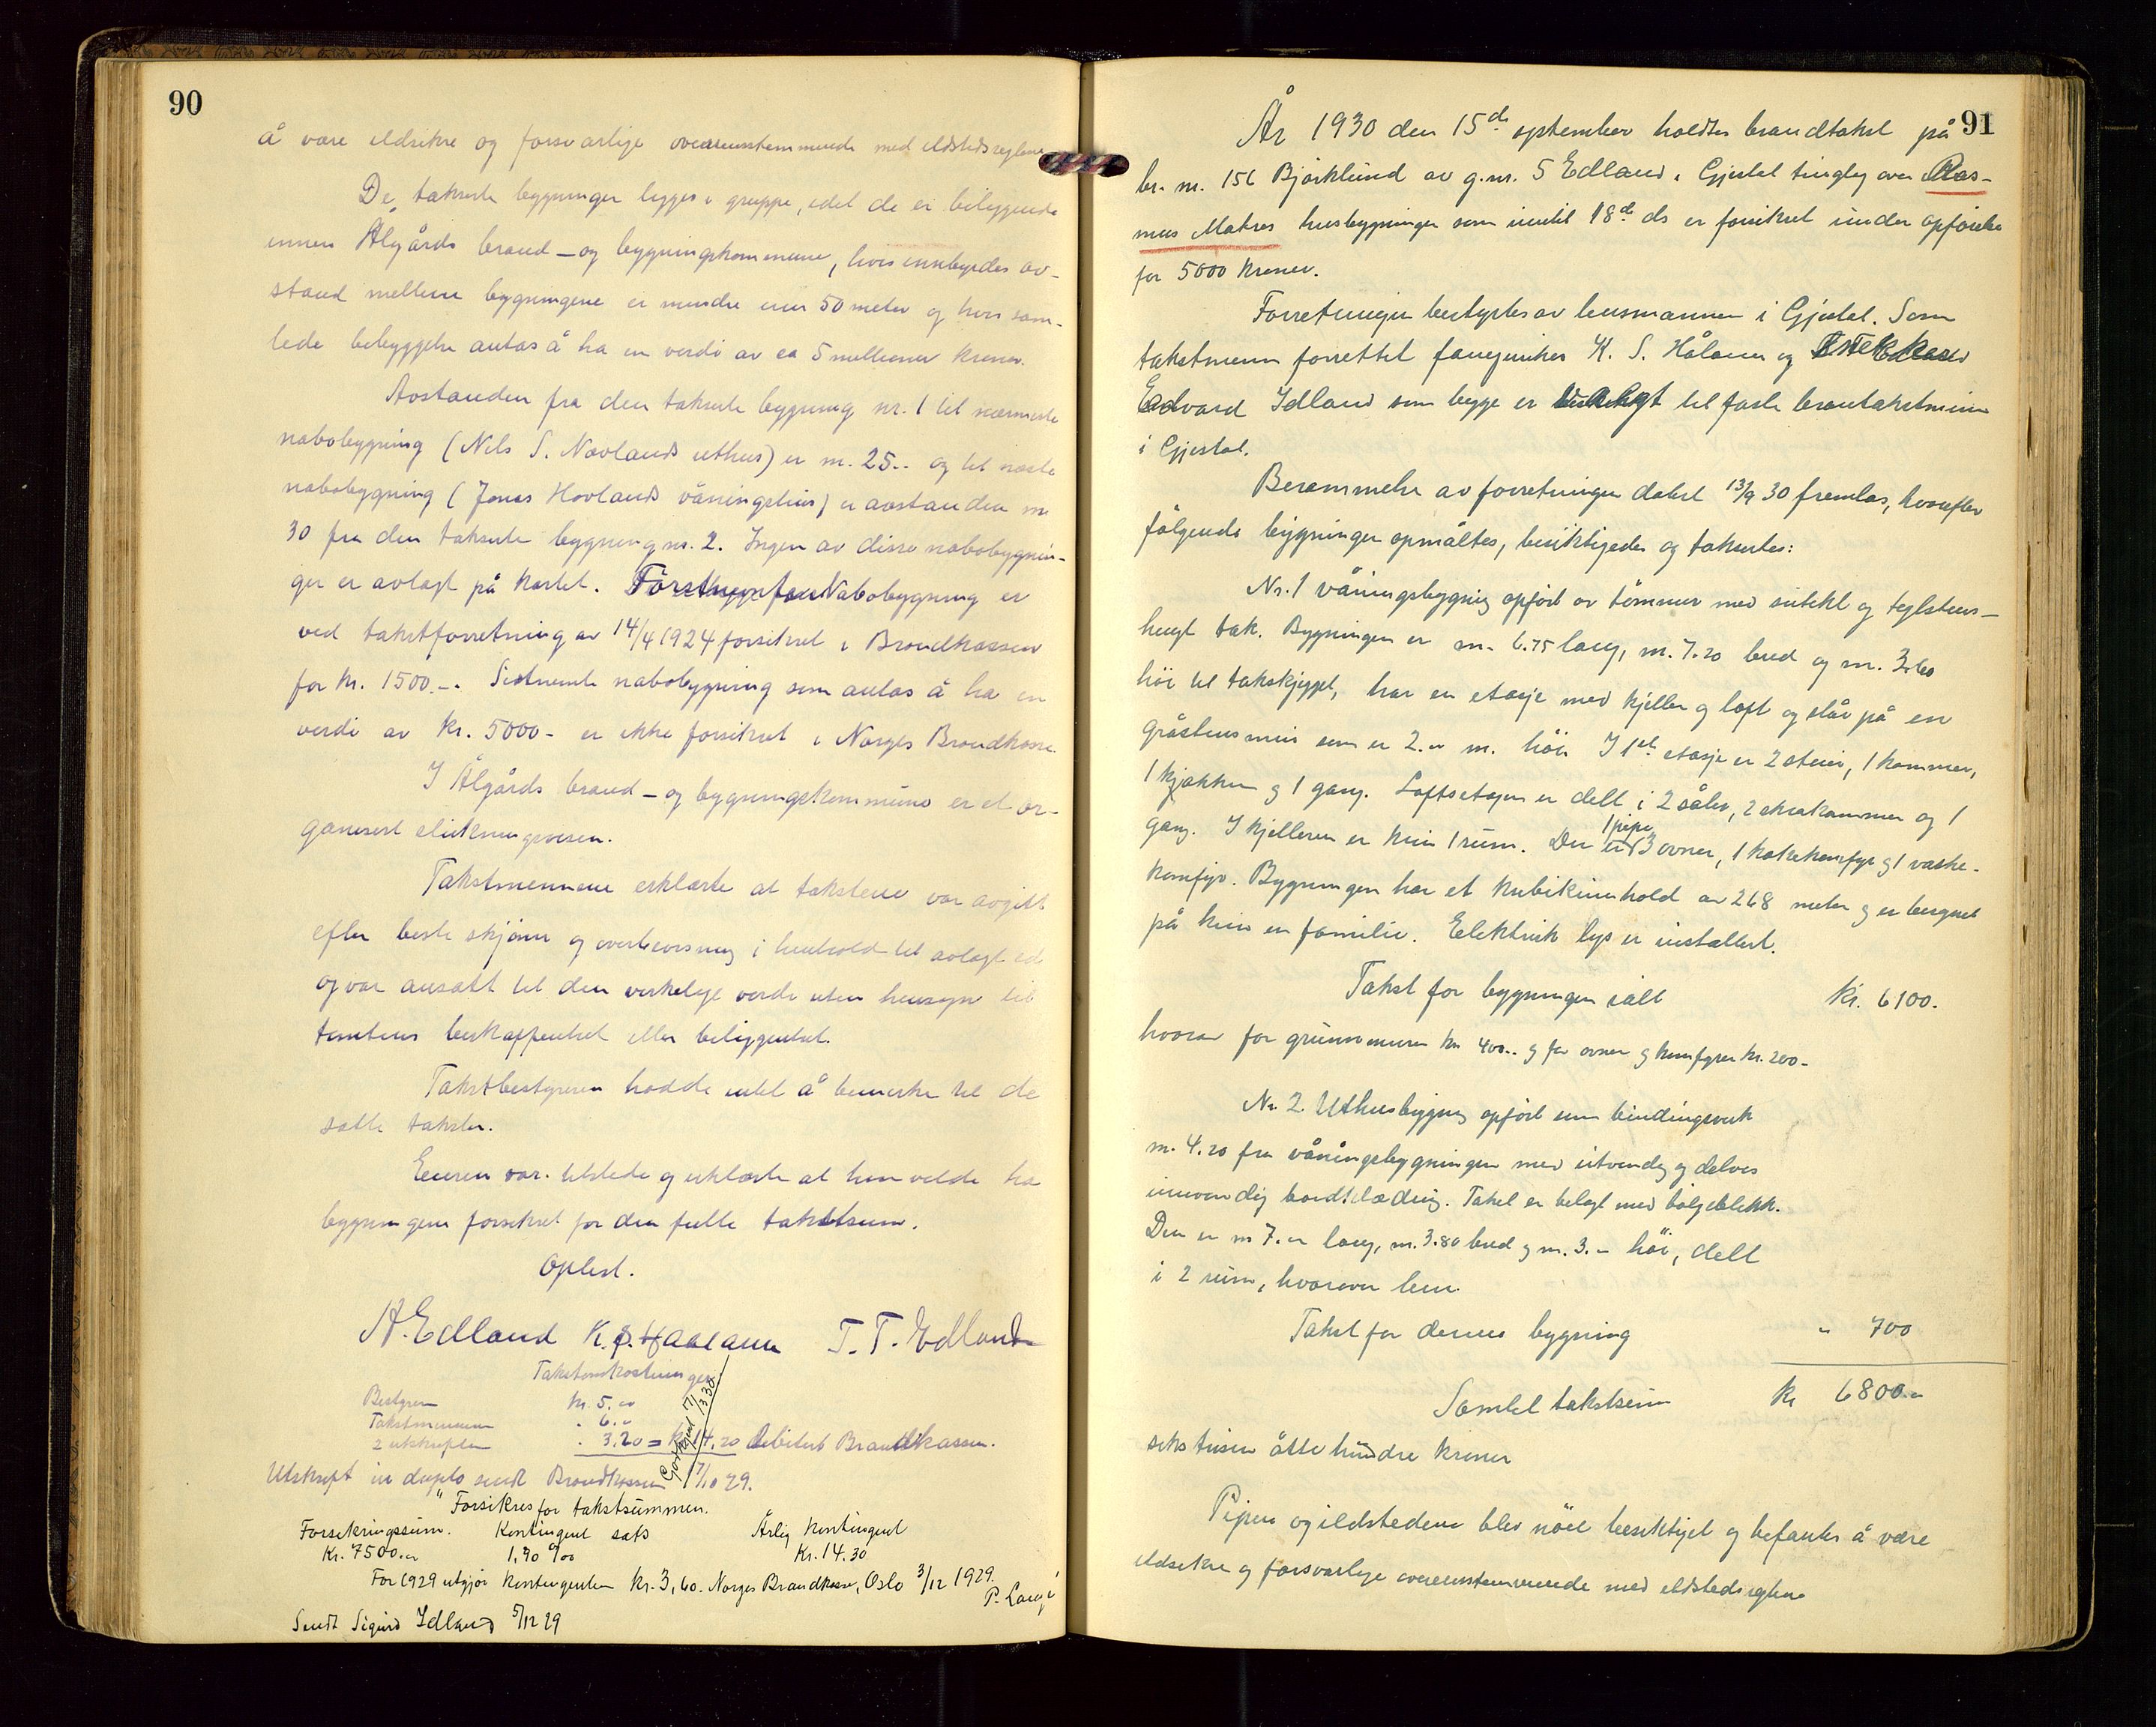 90
å være ildsikre og forsvarlige overensstemmende med ildstedsreglene
De takserte bygninger ligger i gruppe, idet de er beliggende
innen Ålgårds brand- og bygningskommune, hvis innbyrdes av-
stand mellem bygningene er mindre enn 50 meter og hvis sam-
lede bebyggelse antas å ha en verdi av ca 5 millioner kroner.
Avstanden fra den takserte bygning nr. 1 til nærmeste
nabobygning (Nils S. Navlands uthus) er m. 25.- og til næste
nabobygning (Jonas Hovlands våningshus) er avstanden m
30 fra den takserte bygning nr. 2. Ingen av disse nabobygnin-
ger er avlagt på kartet. Nabobygning er
ved takstforretning av 14/4 1924 forsikret i Brandkassen
for kr. 1500.-. Sistnevnte nabobygning som antas å ha en
verdi av kr. 5000- er ikke forsikret i Norges Brandkasse
I Ålgårds brand- og bygningskommune er et or-
ganisert slukningsvesen.
Takstmennene erklærte at takstene var avgitt
efter beste skjønn og overbevisning i henhold til avlagt ed
og var ansatt til den virkelige verdi uten hensyn til
tomtens beskaffenhet eller beliggenhet.
Takstbestyreren hadde intet å bemerke til de
satte takster.
Eieren var tilstede og erklærte at han vilde ha
bygningene forsikret for den fulle takstsum.
Oplest.
A. Edland K. S. Haaland T. T. Edland
Takstomkostninger
Bestyrer kr. 5.00
Takstmennene " 6.00
2 utskrifter " 3.20 = kr. 14.20 debitert Brandkassen.
Godkjent 7/1 30
Utskrift in duplo sendt Brandkassen 17/10 29.
"Forsikres for takstsummen.
Forsikringssum. Kontingent sats Årlig kontingent
Kr. 7500.00 1,90 ‰ Kr. 14.30
For 1929 utgjør kontingenten kr. 3,60. Norges Brandkasse, Oslo 3/12 1929.
P. Lange
Sendt Sigurd Idland 5/12 29
91
År 1930 den 15de september holdtes brandtakst på
br. nr. 156 Bjørklund av g.nr. 5 Edland i Gjestal tinglag over Ras-
mus Matres husbygninger som inntil 18de ds er forsikret under opførelse
for 5000 kroner.
Forretningen bestyrtes av lensmannen i Gjestal. Som
takstmenn forrettet K. S. Håland og
Edvard Idland som begge er valgt til faste brantakstmenn
i Gjestal.
Berammelse av forretningen datert 13/9 30 fremlas, hvorefter
følgende bygninger opmåltes, besiktigedes og taksertes:
Nr. 1 våningsbygning opført av tømmer med sutekt og teglstens-
hengt tak. Bygningen er m. 6.75 lang, m. 7.20 bred og m. 3.60
høi til takskjegget, har en etasje med kjeller og loft og står på en
gråstensmur som er 2.00 m. høi. I 1ste etasje er 2 stuer, 1 kammer,
1 kjøkken og 1 gang. Loftsetasjen er delt i 2 saler, 2 skrakammer og 1
gang. I kjelleren er kun 1 rum. Der er 1 pipe 3 ovner, 1 kokekomfyr og 1 vaske-
komfyr. Bygningen har et kubikinnhold av 268 meter og er beregnet
på kun en familie. Elektrisk lys er installert.
Takst for bygningen ialt Kr. 6100.
hvorav for grunnmuren kr 400.- og for ovner og komfyrer kr. 200-
Nr. 2. Uthusbygning opført som bindingsverk
m. 4.20 fra våningsbygningen med utvendig og delvis
innvendig bordklædning. Taket er belagt med bølgeblekk.
Den er m 7.00 lang, m. 3.80 bred og m. 3.00 høi, delt
i 2 rum, hvorover lem.
Takst for denne bygning " 700
Samlet takstsum kr 6800.00
seks tusen åtte hundre kroner
Pipen og ildstedene blev nøie besiktiget og befantes å være
ildsikre og forsvarlige overensstemmende med ildstedsreglene